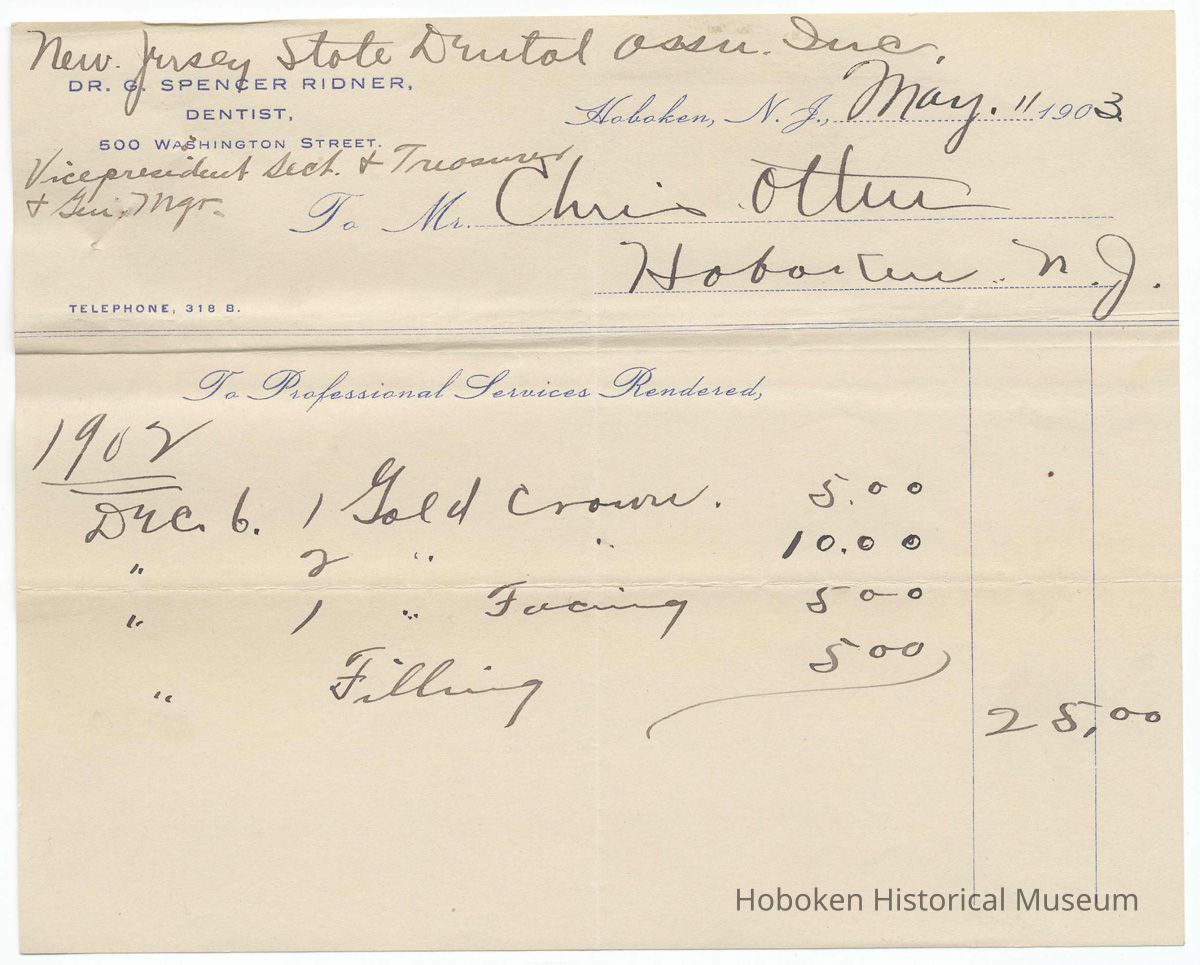 New. Jersey State Dental Assn. Inc.
DR. G. SPENCER RIDNER,
DENTIST,
500 WASHINGTON STREET.
Hoboken, N. J., May. 11 1903
Vicepresident Sect. & Treasurer
& Gen. Mgr.
To Mr. Chris Otten
Hoboken. N. J.
TELEPHONE, 318 B.
To Professional Services Rendered,
1902
Dec. 6. 1 Gold Crown. 5.00
" 2 " " 10.00
" 1 " Facing 500
" Filling 500
25,00
Hoboken Historical Museum